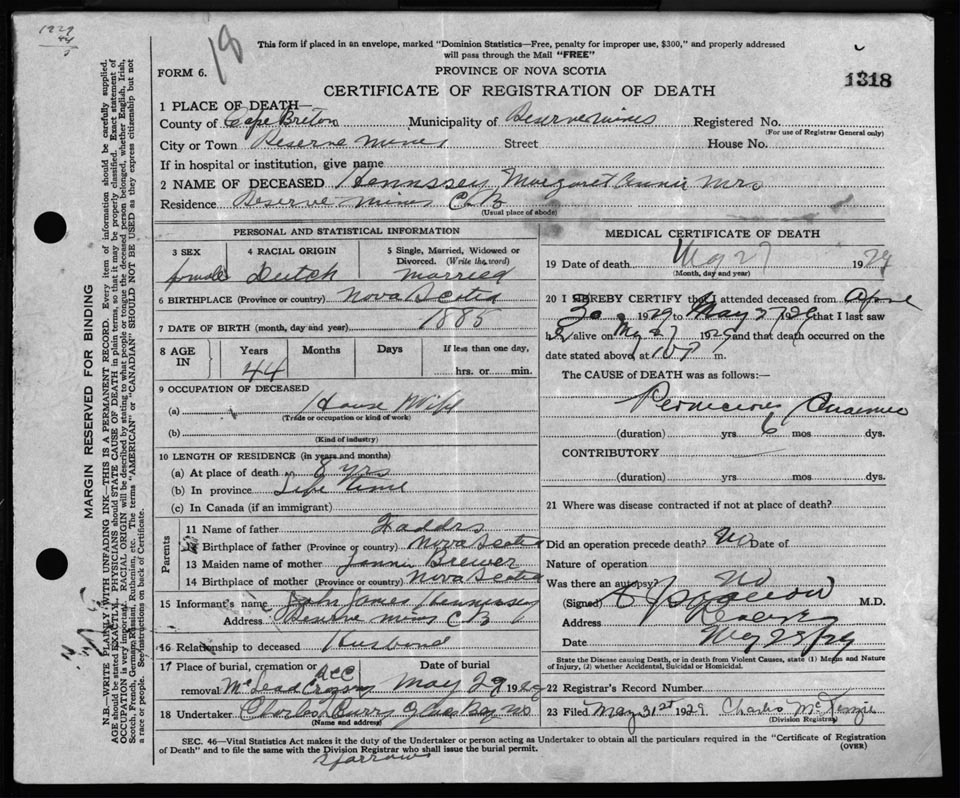 1929
18
This form if placed in an envelope, marked "Dominion Statistics—Free, penalty for improper use, $300," and properly addressed
will pass through the Mail "FREE"
FORM 6.
PROVINCE OF NOVA SCOTIA
1318
CERTIFICATE OF REGISTRATION OF DEATH
1 PLACE OF DEATH—
County of Cape Breton Municipality of Reserve Mines Registered No.
(For use of Registrar General only)
City or Town Reserve Mines Street House No.
If in hospital or institution, give name
2 NAME OF DECEASED Hennssey, Margaret Annie Mrs
Residence Reserve Mines C.B.
(Usual place of abode)
PERSONAL AND STATISTICAL INFORMATION
3 SEX female
4 RACIAL ORIGIN Dutch
5 Single, Married, Widowed or Divorced. (Write the word) married
6 BIRTHPLACE (Province or country) Nova Scotia
7 DATE OF BIRTH (month, day and year) 1885
8 AGE IN Years Months Days If less than one day,
44 hrs. or min.
9 OCCUPATION OF DECEASED
(a) House Wife
(Trade or occupation or kind of work)
(b)
(Kind of industry)
10 LENGTH OF RESIDENCE (in years and months)
(a) At place of death 8 yrs
(b) In province Life Time
(c) In Canada (if an immigrant)
Parents
11 Name of father
12 Birthplace of father (Province or country) Nova Scotia
13 Maiden name of mother Brewer
14 Birthplace of mother (Province or country) Nova Scotia
15 Informant's name John James Hennessey
Address Reserve Mines C.B.
16 Relationship to deceased Husband
17 Place of burial, cremation or removal McLead Crossing
Date of burial May 29 1929
18 Undertaker Charles Curry Glace Bay NS
(Name and address)
MEDICAL CERTIFICATE OF DEATH
19 Date of death May 27 1929
(Month, day and year)
20 I HEREBY CERTIFY that I attended deceased from
30 1929 to May 27 1929 that I last saw
her alive on May 27 1929 and that death occurred on the
date stated above at 10 P m.
The CAUSE of DEATH was as follows:—
Pernicious Anaemia
(duration) yrs 6 mos dys.
CONTRIBUTORY
(duration) yrs mos dys.
21 Where was disease contracted if not at place of death?
Did an operation precede death? No Date of
Nature of operation
Was there an autopsy? No
(Signed) M.D.
Address Reserve
Date May 28/29
State the Disease causing Death, or in death from Violent Causes, state (1) Means and Nature
of Injury, (2) whether Accidental, Suicidal or Homicidal.
22 Registrar's Record Number
23 Filed May 31st 1929 Charles McKenzie
(Division Registrar)
SEC. 46—Vital Statistics Act makes it the duty of the Undertaker or person acting as Undertaker to obtain all the particulars required in the "Certificate of Registration
of Death" and to file the same with the Division Registrar who shall issue the burial permit.
(OVER)
Sparrows
MARGIN RESERVED FOR BINDING
N.B.—WRITE PLAINLY WITH UNFADING INK—THIS IS A PERMANENT RECORD. Every item of information should be carefully supplied.
AGE should be stated EXACTLY. PHYSICIANS should STATE CAUSE OF DEATH in plain terms, so that it may be properly classified. Exact statement of
OCCUPATION is very important. RACIAL ORIGIN will be described by stating to what people or tongue the deceased person belonged, whether English, Irish,
Scotch, French, German, Russian, Ruthenian, etc. The terms "AMERICAN" or "CANADIAN" SHOULD NOT BE USED as they express citizenship but not
a race or people. See instructions on back of Certificate.